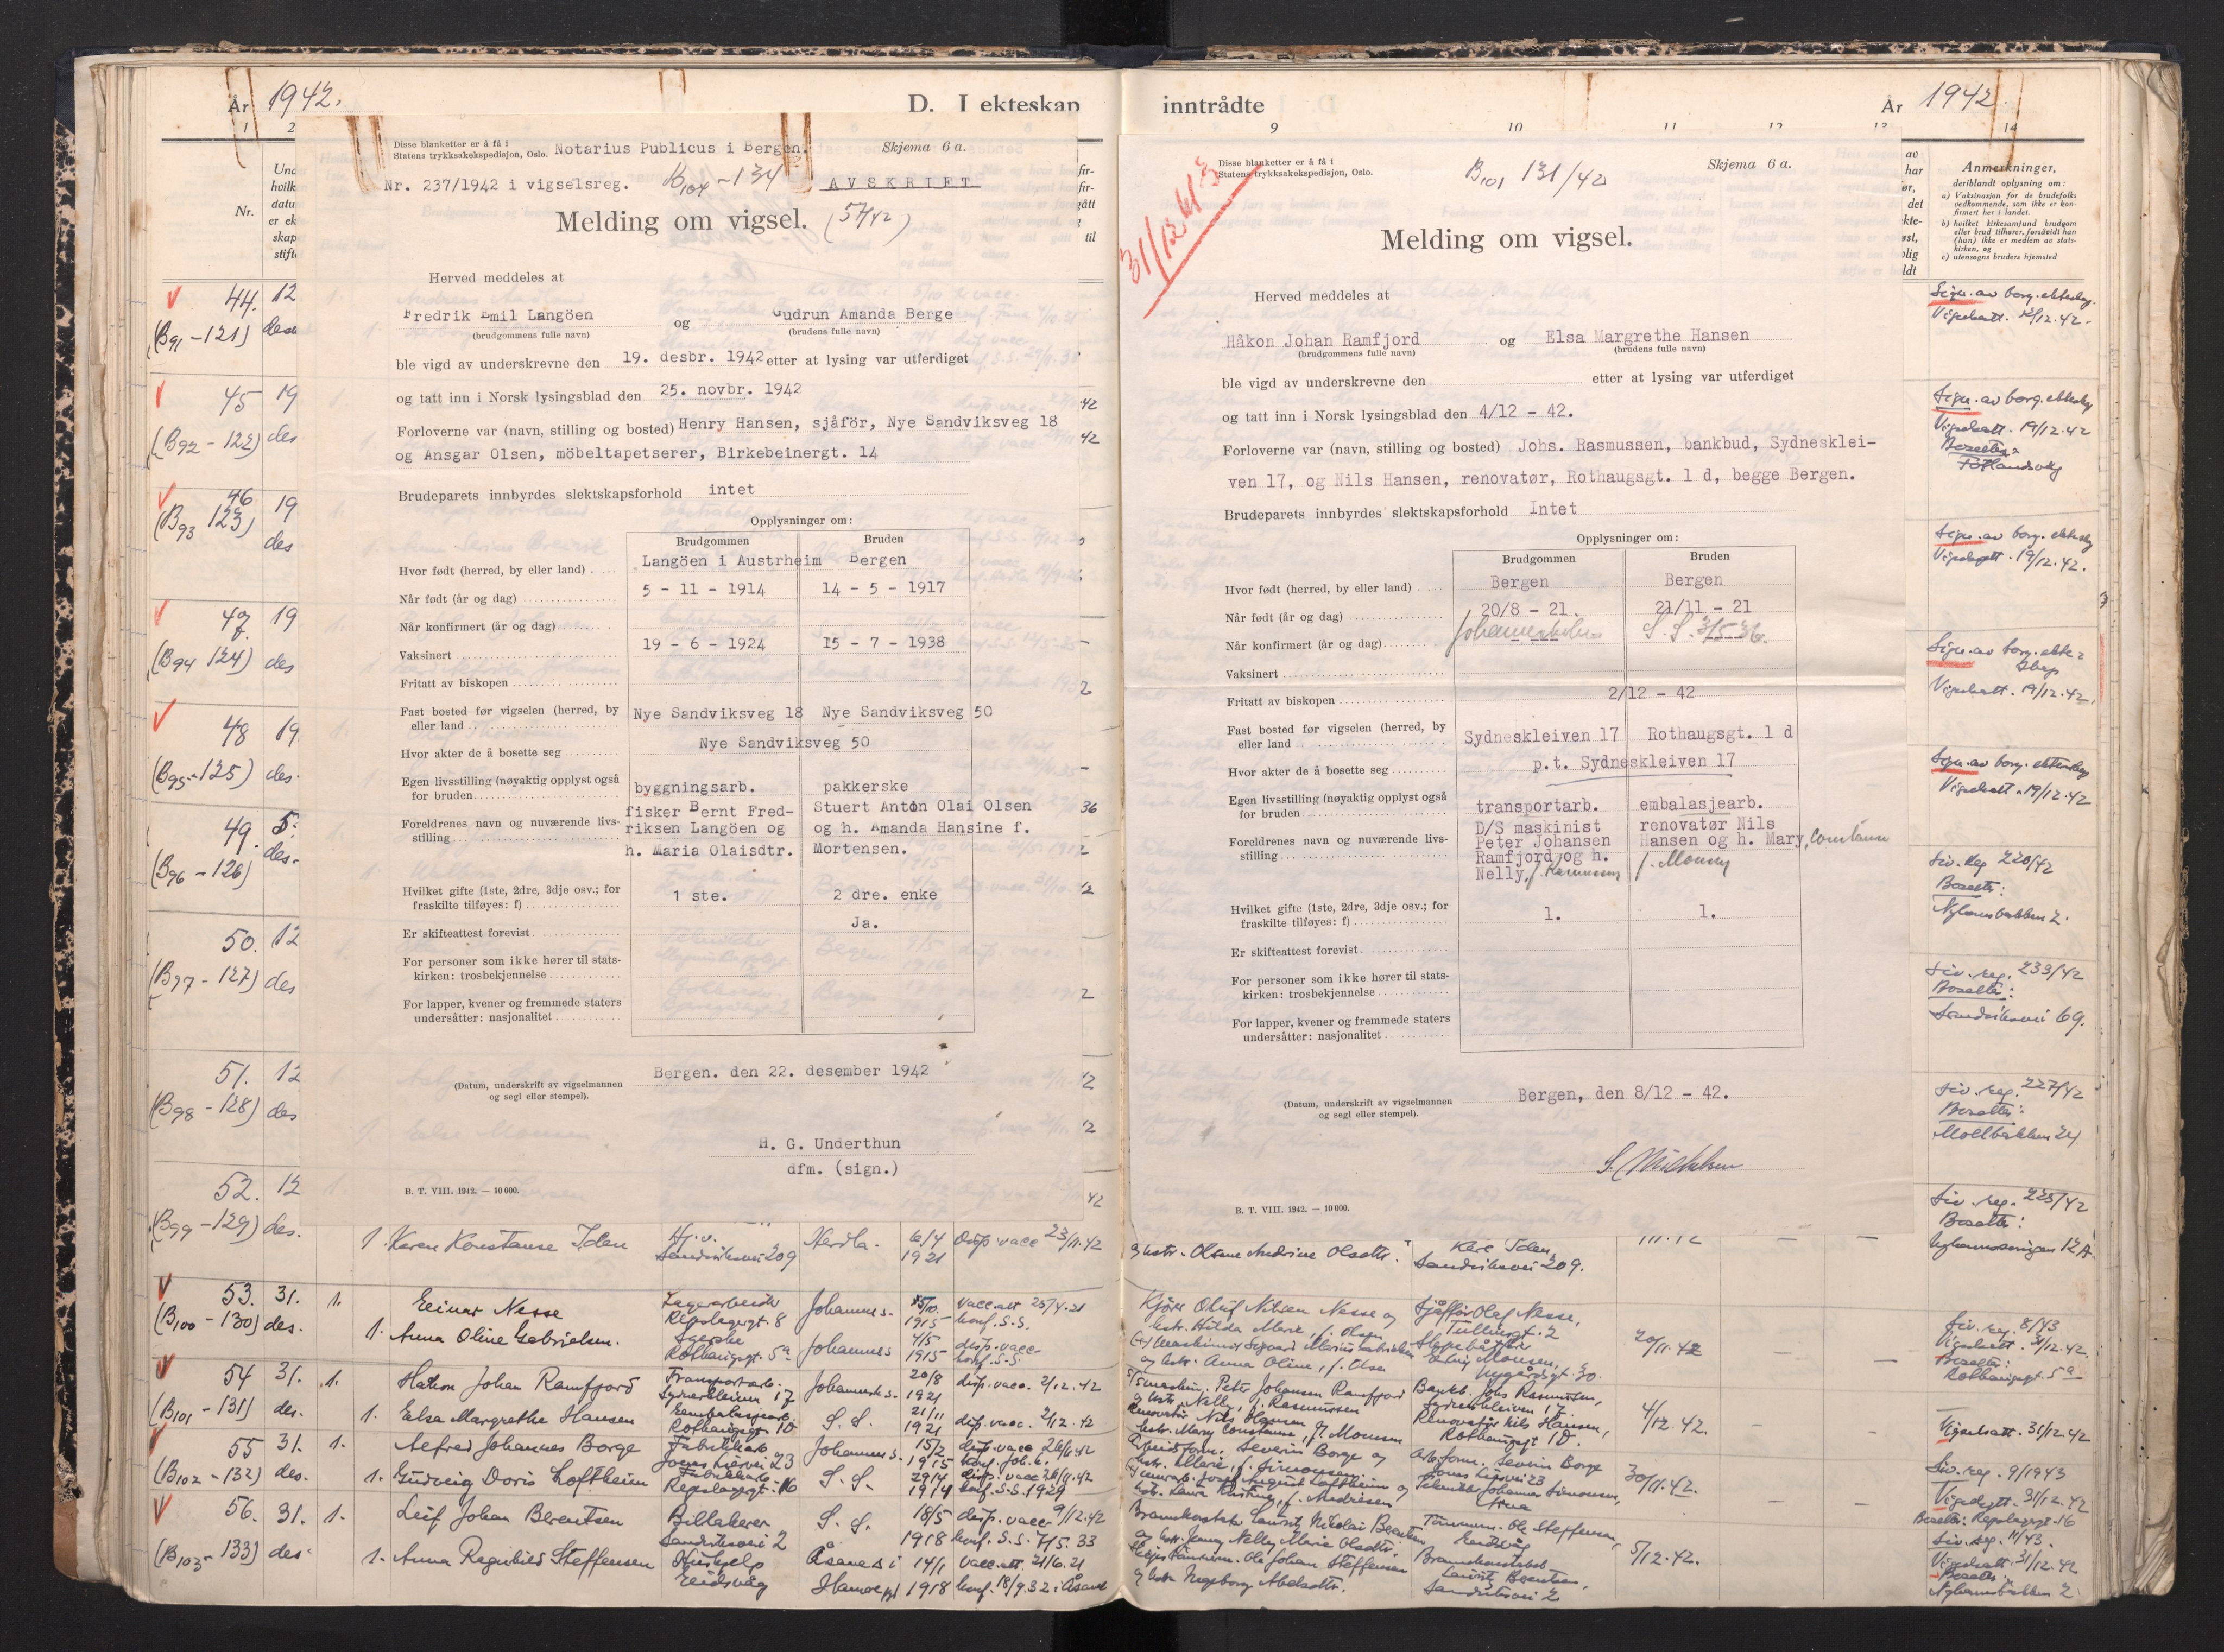 År 1942.
D. I ekteskap
1 2
Nr.
Und
hvilk
datu
er ek
skap
stift
44. 12
(B91 - 121) des
45 19
(B92 - 122) des
46 19
(B93 123) des
47 19
(B94 124) des
48 19
(B95 - 125) des.
49. 5.
(B96 - 126) des.
50. 12
(B97 - 127) des
51. 12
(B98 - 128) des
52. 12
(B99 - 129) des.
Disse blanketter er å få i
Statens trykksakekspedisjon, Oslo. Notarius Publicus i Bergen. Skjema 6 a.
Nr. 237/1942 i vigselsreg. B104 - 134 AVSKRIFT
Melding om vigsel. (57/42)
Herved meddeles at
Fredrik Emil Langöen og Gudrun Amanda Berge
(brudgommens fulle navn) (brudens fulle navn)
ble vigd av underskrevne den 19. desbr. 1942 etter at lysing var utferdiget
og tatt inn i Norsk lysingsblad den 25. novbr. 1942
Forloverne var (navn, stilling og bosted) Henry Hansen, sjåför, Nye Sandviksveg 18
og Ansgar Olsen, möbeltapetserer, Birkebeinergt. 14
Brudeparets innbyrdes slektskapsforhold intet
Opplysninger om:
Brudgommen Bruden
Hvor født (herred, by eller land) Langöen i Austrheim Bergen
Når født (år og dag) 5 - 11 - 1914 14 - 5 - 1917
Når konfirmert (år og dag)
Vaksinert 19 - 6 - 1924 15 - 7 - 1938
Fritatt av biskopen
Fast bosted før vigselen (herred, by
eller land Nye Sandviksveg 18 Nye Sandviksveg 50
Hvor akter de å bosette seg Nye Sandviksveg 50
Egen livsstilling (nøyaktig opplyst også
for bruden byggningsarb. pakkerske
Foreldrenes navn og nuværende livs-
stilling fisker Bernt Fred- Stuert Anton Olai Olsen
riksen Langöen og og h. Amanda Hansine f.
h. Maria Olaisdtr. Mortensen.
Hvilket gifte (1ste, 2dre, 3dje osv.; for
fraskilte tilføyes: f) 1 ste. 2 dre. enke
Er skifteattest forevist Ja.
For personer som ikke hører til stats-
kirken: trosbekjennelse
For lapper, kvener og fremmede staters
undersåtter: nasjonalitet
(Datum, underskrift av vigselmannen
og segl eller stempel). Bergen. den 22. desember 1942
H. G. Underthun
dfm. (sign.)
B. T. VIII. 1942. — 10 000.
1. Karen Konstanse Iden Hj.v. Sandviksvei 209 Herdla. 6/4 1921 Disp. vacc 23/11.42
53. 31. 1. Einar Nesse Lagerarbeider Repslagergt. 8 Johannes. 15/10. 1915 vacc.att 25/4.21 konf. S.S.
(B100 - 130) des. 1. Anna Oline Gabrielsen. Syerske Rothaugsgt. 5a Johannes 4/5 1915 disp. vacc. konf. S.S.
54 31. 1. Håkon Johan Ramfjord Transportarb. Sydneskleiven 17 Johannesk. 20/8 1921 disp. vacc. 2/12.42
(B101 - 131) des. 1. Elsa Margrethe Hansen Embalasjearb. Rothaugsgt. 1D S. S. 21/11 1921 disp. vacc. 2/12.42
55 31. 1. Alfred Johannes Borge Fabrikkarb. Jonas Liesvei 23 Johannes. 15/2 1915 disp. vacc 26/11.42 konf. Joh.k.
(B102 - 132) des. 1. Gudveig Doris Loftheim Fabrikkarb Repslagergt. 16 S. S. 29/4 1914 disp. vacc 26/11.42 konf. S.S. 1929
56. 31. 1. Leif Johan Berentsen Billakerer Sandviksvei 2 S. S. 18/5 1918 disp. vacc 9/12.42 konf. S.S. 7/5.33
(B103 - 133) des 1. Anna Regulies Steffensen Hushjelp Eidsvåg Åsane i Hamre pgj 14/1 1918 vacc. att. 21/6.21 konf. 18/9.32 i Åsane
inntrådte
År 1942.
9 10 11 12 13 14
Anmerkninger,
deriblandt oplysning om:
a) Vaksinasjon for de brudefolks
vedkommende, som ikke er kon-
firmert her i landet.
b) hvilket kirkesamfund brudgom
eller brud tilhører, forsåvidt han
(hun) ikke er medlem av stats-
kirken, og
c) utensogns bruders hjemsted
31/12 kl 3
Disse blanketter er å få i
Statens trykksakekspedisjon, Oslo. B101 131/42 Skjema 6 a.
Melding om vigsel.
Herved meddeles at
Håkon Johan Ramfjord og Elsa Margrethe Hansen
(brudgommens fulle navn) (brudens fulle navn)
ble vigd av underskrevne den etter at lysing var utferdiget
og tatt inn i Norsk lysingsblad den 4/12 - 42.
Forloverne var (navn, stilling og bosted) Johs. Rasmussen, bankbud, Sydnesklei-
ven 17, og Nils Hansen, renovatør, Rothaugsgt. 1 d, begge Bergen.
Brudeparets innbyrdes slektskapsforhold Intet
Opplysninger om:
Brudgommen Bruden
Hvor født (herred, by eller land) Bergen Bergen
Når født (år og dag) 20/8 - 21. 21/11 - 21
Når konfirmert (år og dag) Johanneskirken S. S. 3/5 36.
Vaksinert
Fritatt av biskopen 2/12 - 42
Fast bosted før vigselen (herred, by
eller land Sydneskleiven 17 Rothaugsgt. 1 d
Hvor akter de å bosette seg p.t. Sydneskleiven 17
Egen livsstilling (nøyaktig opplyst også
for bruden transportarb. embalasjearb.
Foreldrenes navn og nuværende livs-
stilling D/S maskinist renovatør Nils
Peter Johansen Hansen og h. Mary, Constanse
Ramfjord og h. f. Monsen
Nelly, f. Rasmussen
Hvilket gifte (1ste, 2dre, 3dje osv.; for
fraskilte tilføyes: f) 1. 1.
Er skifteattest forevist
For personer som ikke hører til stats-
kirken: trosbekjennelse
For lapper, kvener og fremmede staters
undersåtter: nasjonalitet
(Datum, underskrift av vigselmannen
og segl eller stempel). Bergen, den 8/12 - 42.
B. T. VIII. 1942. — 10 000.
Sign. av borg. ekteskap.
Vigselsatt. 12/12.42.
Sign. av borg. ekteskap
Vigselsatt. 19/12.42
Bosetter:
Sign. av borg. ekteskap
Vigselsatt. 19/12.42.
Sign. av borg. ekte-
skap
Vigselsatt. 19/12.42.
Sign. av borg. ekteskap
Vigselsatt. 19/12.42
Siv. reg 220/42
Bosetter:
Nyhavnsbakken 2.
Siv. reg. 233/42
Bosetter:
Sandviksvei 69.
Siv. reg. 227/42
Bosetter:
Mollbakken 24
Siv. reg. 225/42
Bosetter:
Nyhavnsvingen 12A.
og hstr. Olsine Andrine Olsdtr. Kåre Iden, Sandviksvei 209.
Kjører Oluf Nilsen Nesse og hstr. Hulda Marie, f. Olsen Sjåffør Olaf Nesse, Tullinsgt. 2 20/11.42 Siv. reg. 8/43
og hstr. Anna Oline, f. Olsen Monsen, Nygårdsgt. 30. Vigselsatt. 31/12.42. Bosetter: Rothaugsgt. 5a
D/Smaskin. Peter Johansen Ramfjord og hstr. Nelly, f. Rasmussen Bankb. Johs Rasmussen, Sydneskleiven 17. 4/12.42.
Renovatør Nils Hansen, hstr. Mary Constanse, f. Monsen Renovatør Nils Hansen, Rothaugsgt 1D. Vigselsatt. 31/12.42
Arbeidsform. Severin Borge og hstr. Marie, f. Simonsen Arb.form. Severin Borge Jonas Liesvei 23 30/11.42. Siv. reg. 9/1943
August Loftheim og hstr. Laura Kristine, f. Andresen Johannes Simonsen, Vigselsatt. 31/12.42 Bosetter: Repslagergt. 16
Brannkonstabel Lauritz Nikolai Berentsen og hstr. Jenny Nelly Marie Olsdtr. Tømmerm. Ole Steffensen, Eidsvåg 5/12.42. Siv. reg. 11/43.
Ole Johan Steffensen og hstr. Ingeborg Abelsdtr. Brannkonstabel Lauritz Berentsen, Sandviksvei 2 Vigselsatt. 31/12.42 Bosetter: Nyhavnsbakken 2